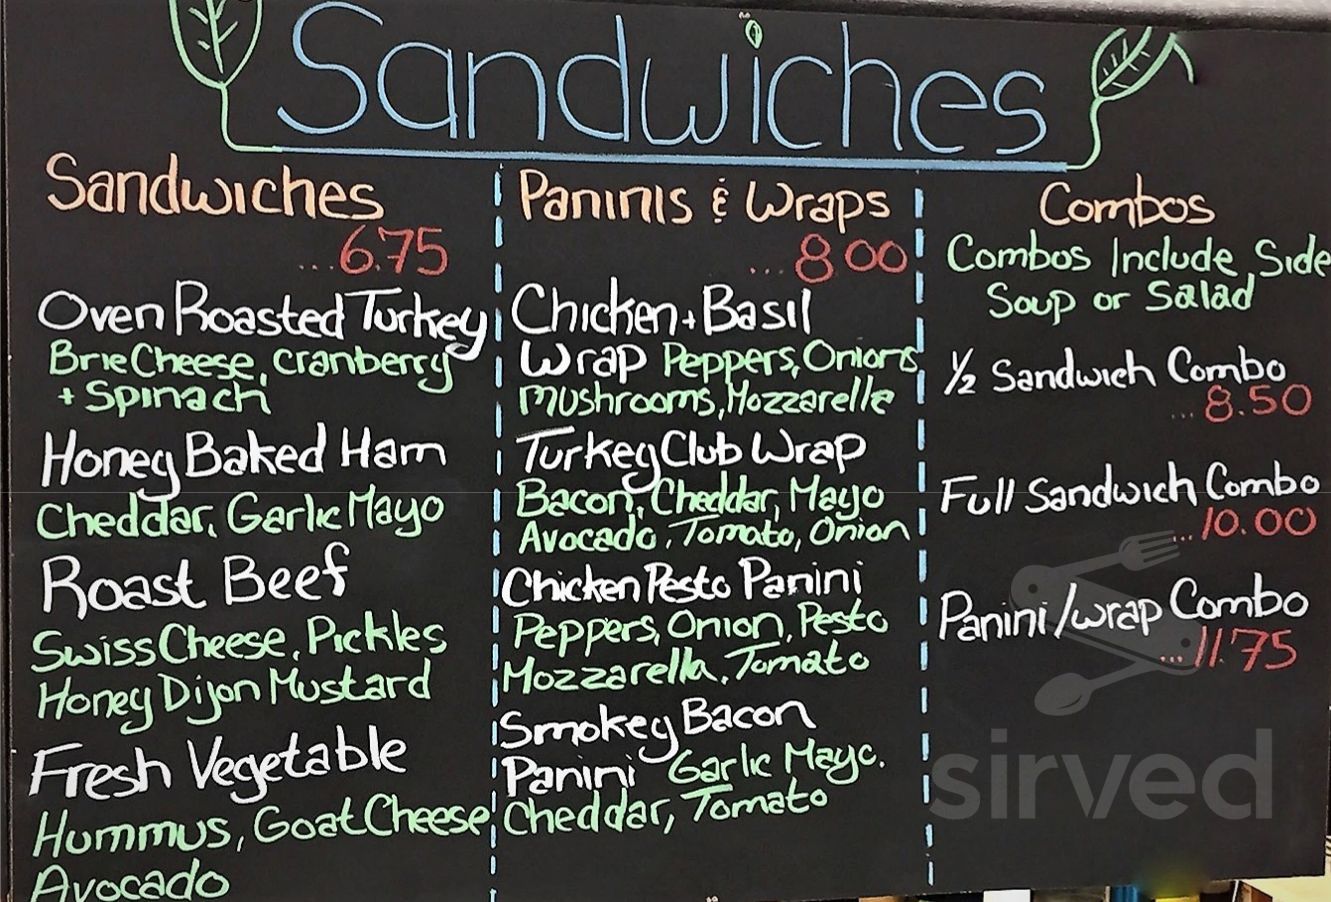 Sandwiches
Sandwiches
...6.75
Oven Roasted Turkey
Brie Cheese, cranberry
+ Spinach
Honey Baked Ham
Cheddar, Garlic Mayo
Roast Beef
Swiss Cheese, Pickles
Honey Dijon Mustard
Fresh Vegetable
Hummus, Goat Cheese
Avocado
Paninis & Wraps
...8.00
Chicken + Basil
Wrap Peppers, Onions
Mushrooms, Mozzarelle
Turkey Club Wrap
Bacon, Cheddar, Mayo
Avocado, Tomato, Onion
Chicken Pesto Panini
Peppers, Onion, Pesto
Mozzarella, Tomato
Smokey Bacon
Panini Garlic Mayo.
Cheddar, Tomato
Combos
Combos Include, Side
Soup or Salad
1/2 Sandwich Combo
...8.50
Full Sandwich Combo
...10.00
Panini/Wrap Combo
...11.75
sirved